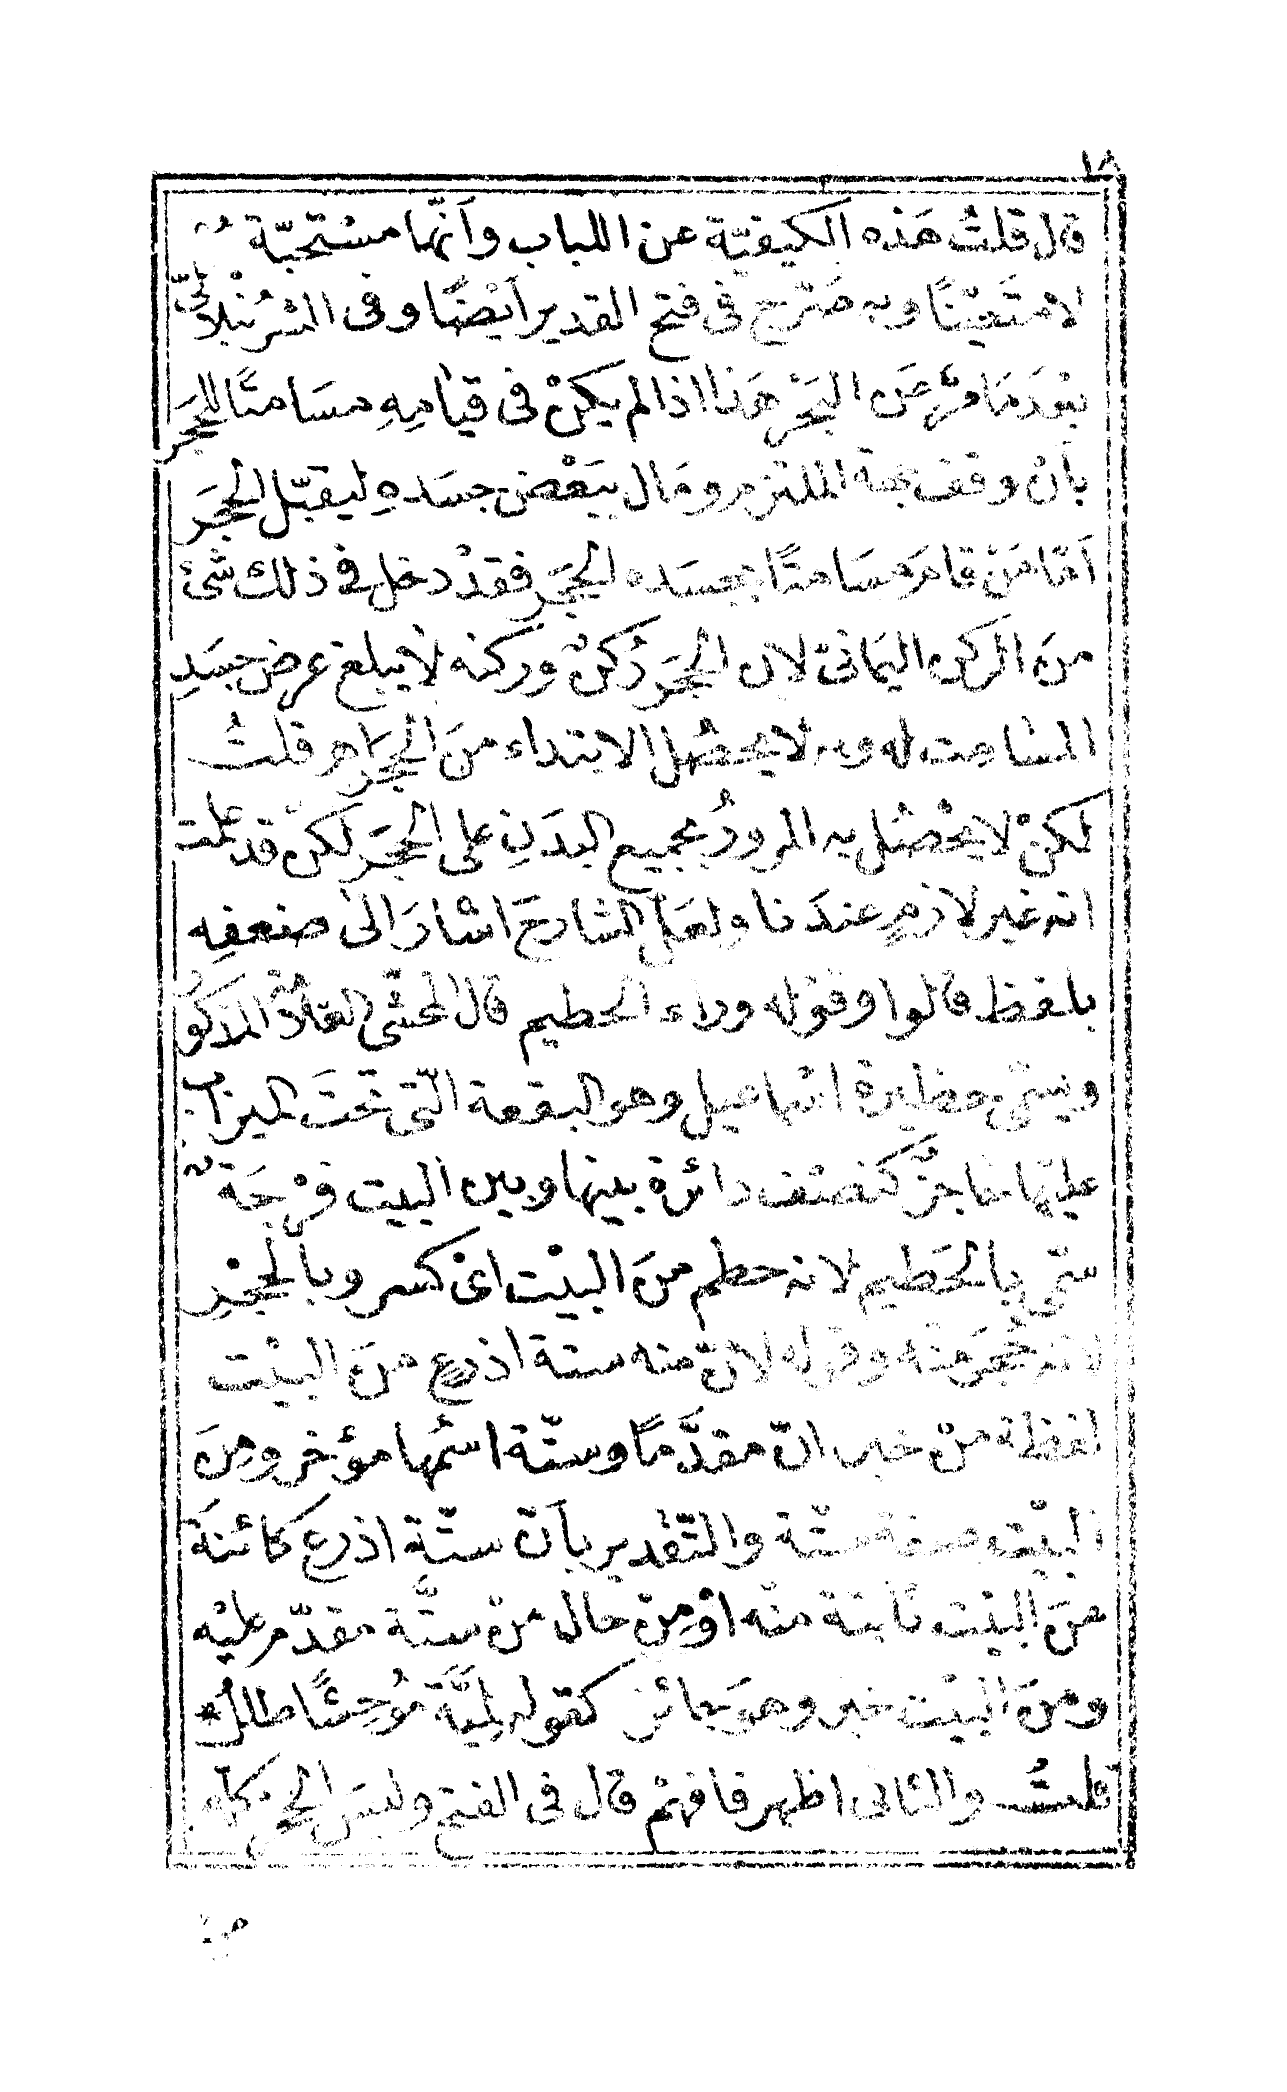 ١٨
قال قلتُ هَذه الكيفيّة عن اللباب وأنّها مسْتحبّة
لا متَعيّنًا وبه صَرّح فى فتح القدير اَيْضًا وفى الشرُنْبلاليّ
بعْدَ مَا مرّ عَن البَحْر هَذا اذا لم يكنْ فى قيَامِهِ مسَامتًا للحَجَر
بأنْ وقف جهة الملتزم ومَال ببَعْض جسَدهِ ليقبّل الحجَر
اَمّا مَنْ قامَ مسَامتًا بجسَده الحجَر فقدْ دخل فى ذلك شئ
منَ الركن اليمَانى لان الحجَر رُكنْ وركنه لا يبلغ عرض جسَدِ
المسَامت له وبه لا يحصُل الابتداء منَ الحجَر اهـ قلتُ
لكنْ لا يحْصُل به المرورُ بجميع البدَنِ على الحجَر لكن قد علمت
انه غير لازمٍ عندَنا ولعَلّ الشارحَ اشارَ الى ضعفِه
بلفظ قالوا وقوْله وراء الحطيم قال المحشّى العلامة المذكو
ويسَمّى حظيرة اسْماعيل وهو البقعة الّتى تحتَ الميزاب
عليْها حاجزٌ كنصْف دائرة بينها وبين البيت فرْجَة
سمّى بالحَطيم لانه حطم منَ البيْت اىْ كسر وبالحجْرِ
لانه حُجرَ منْه وقوله لانّ منه ستة اذرع منَ البيْت
لفظة منْ خبر انّ مقدَّمًا وستّة اسْمها مؤخر ومِنَ
البيْت صفة ستّة والتّقدير بأنّ ستّة اذرع كائنةً
منَ البيْت ثابتة منْه اوْ مِنْ حال منْ ستَّة مقدّم عليْه
ومنَ البيْت خبر وهوَ جائز كقوله لِميَّةَ مُوحِشًا طللُ*
قلتُ والثانى اظهر فافهمْ قال فى الفتح وليسَ الحجر كله